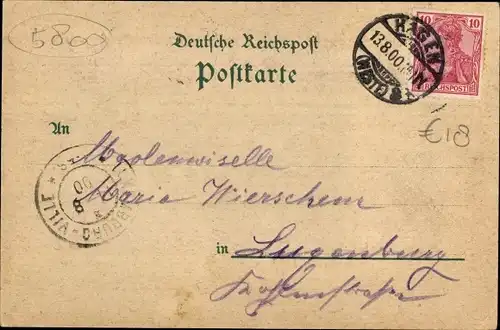 5800
Deutsche Reichspost
Postkarte
10 10
REICHSPOST
HAGEN
13.8.00
(WESTF)
€18
An
Maria Wierschem
LUXEMBURG-VILLE
8
00
in Luxemburg